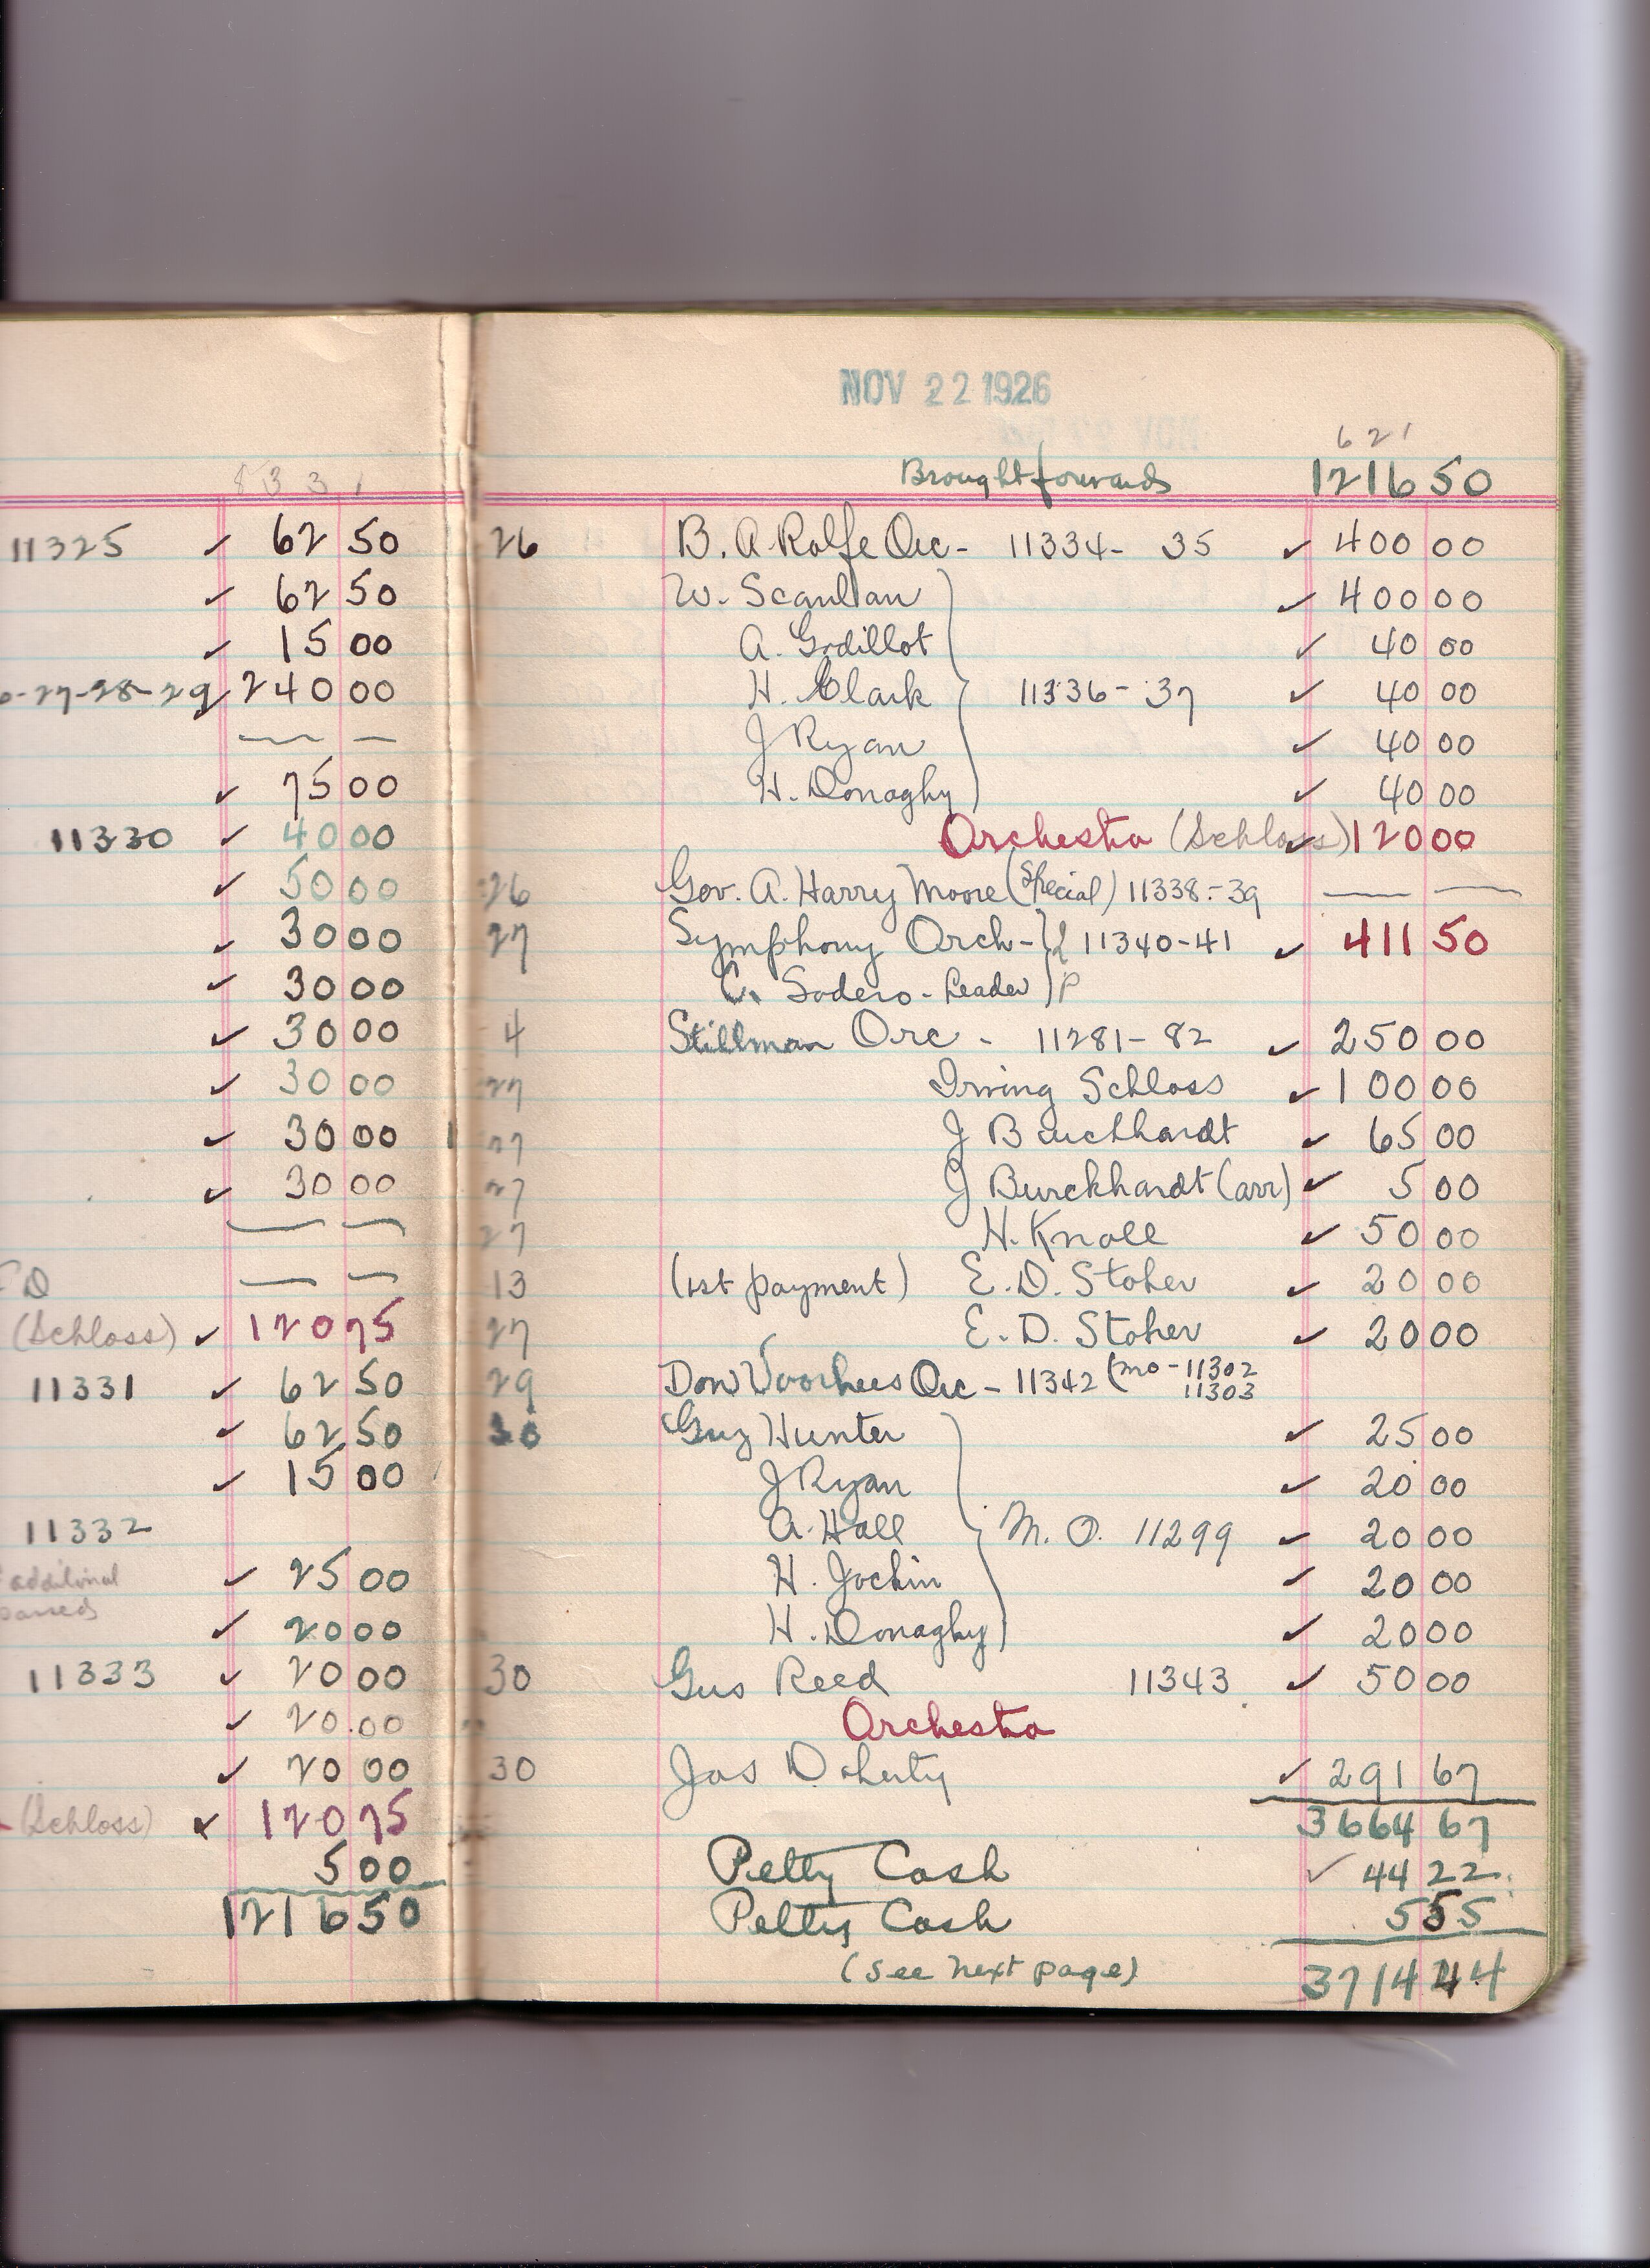 8 3 3 1
11325 ✓ 62 50
✓ 62 50
✓ 15 00
-27-28-29 ✓ 240 00
— —
✓ 75 00
11330 ✓ 40 00
✓ 50 00
✓ 30 00
✓ 30 00
✓ 30 00
✓ 30 00
✓ 30 00
✓ 30 00
— —
D — —
(Schloss) ✓ 120 75
11331 ✓ 62 50
✓ 62 50
✓ 15 00
11332
additional ✓ 25 00
✓ 20 00
11333 ✓ 20 00
✓ 20.00
✓ 20 00
(Schloss) ✓ 120 75
5 00
1216 50
NOV 22 1926
6 2 1
Brought forwards 1216 50
26 B. A. Rolfe Orc- 11334- 35 ✓ 400 00
W. Scanlan ✓ 400 00
A. Godillot ✓ 40 00
H. Clark 11336-37 ✓ 40 00
J Ryan ✓ 40 00
H. Donaghy ✓ 40 00
Orchestra (Schloss) ✓ 120 00
26 Gov. A. Harry Moore (Special) 11338-39 — —
27 Symphony Orch- 11340-41 ✓ 411 50
C. Sodero - Leader P
4 Stillman Orc - 11281-82 ✓ 250 00
27 Irving Schloss ✓ 100 00
27 J Burchhardt ✓ 65 00
27 J Burckhardt (arr) ✓ 5 00
27 H. Knoll ✓ 50 00
13 (1st payment) E. D. Stoher ✓ 20 00
27 E. D. Stoher ✓ 20 00
29 Don Voorhees Orc - 11342 (mo - 11302
11303
30 Guy Hunter ✓ 25 00
J Ryan ✓ 20 00
A. Hall M. O. 11299 ✓ 20 00
H. Jochin ✓ 20 00
H. Donaghy ✓ 20 00
30 Gus Reed 11343 ✓ 50 00
Orchestra
30 Jas Doherty ✓ 291 67
3664 67
Petty Cash ✓ 44 22
Petty Cash 5 55
(See next page) 3714 44